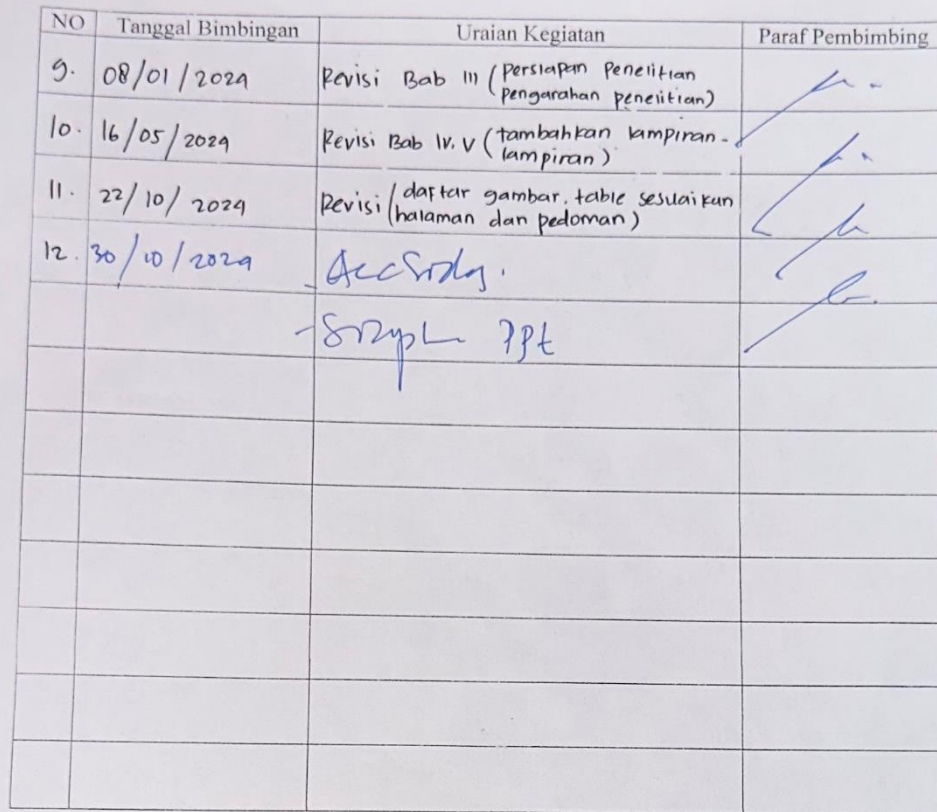 NO Tanggal Bimbingan Uraian Kegiatan Paraf Pembimbing
9. 08/01/2024 Revisi Bab III (persiapan Penelitian
pengarahan penelitian)
10. 16/05/2024 Revisi Bab IV. V (tambahkan lampiran-
lampiran)
11. 22/10/2024 Revisi (daftar gambar. table sesuaikan
halaman dan pedoman)
12. 30/10/2024 Acc
PPt